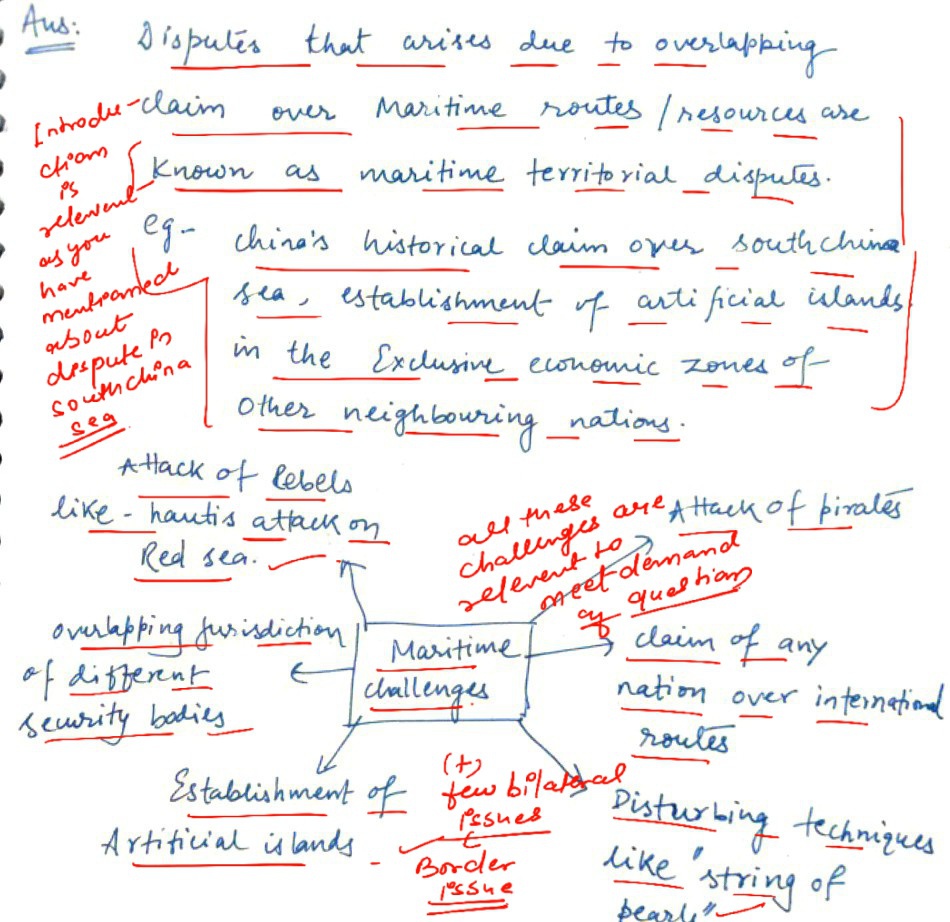 Ans:
Disputes that arises due to overlapping
claim over Maritime routes / resources are
known as maritime territorial disputes.
eg- china's historical claim over south china
sea, establishment of artificial islands
in the Exclusive economic zones of
Other neighbouring nations.
Introdu-
ction
is
relevent
as you
have
mentioned
about
dispute in
south china
sea
Attack of Rebels
like - hautis attack on
Red sea.
all these
challenges are
relevent to
meet demand
of question
Attack of pirates
overlapping jurisdiction
of different
security bodies
Maritime
challenges
claim of any
nation over international
routes
Establishment of
Artificial islands
(+)
few bilateral
issues
Border
issue
Disturbing techniques
like "string of
pearls"